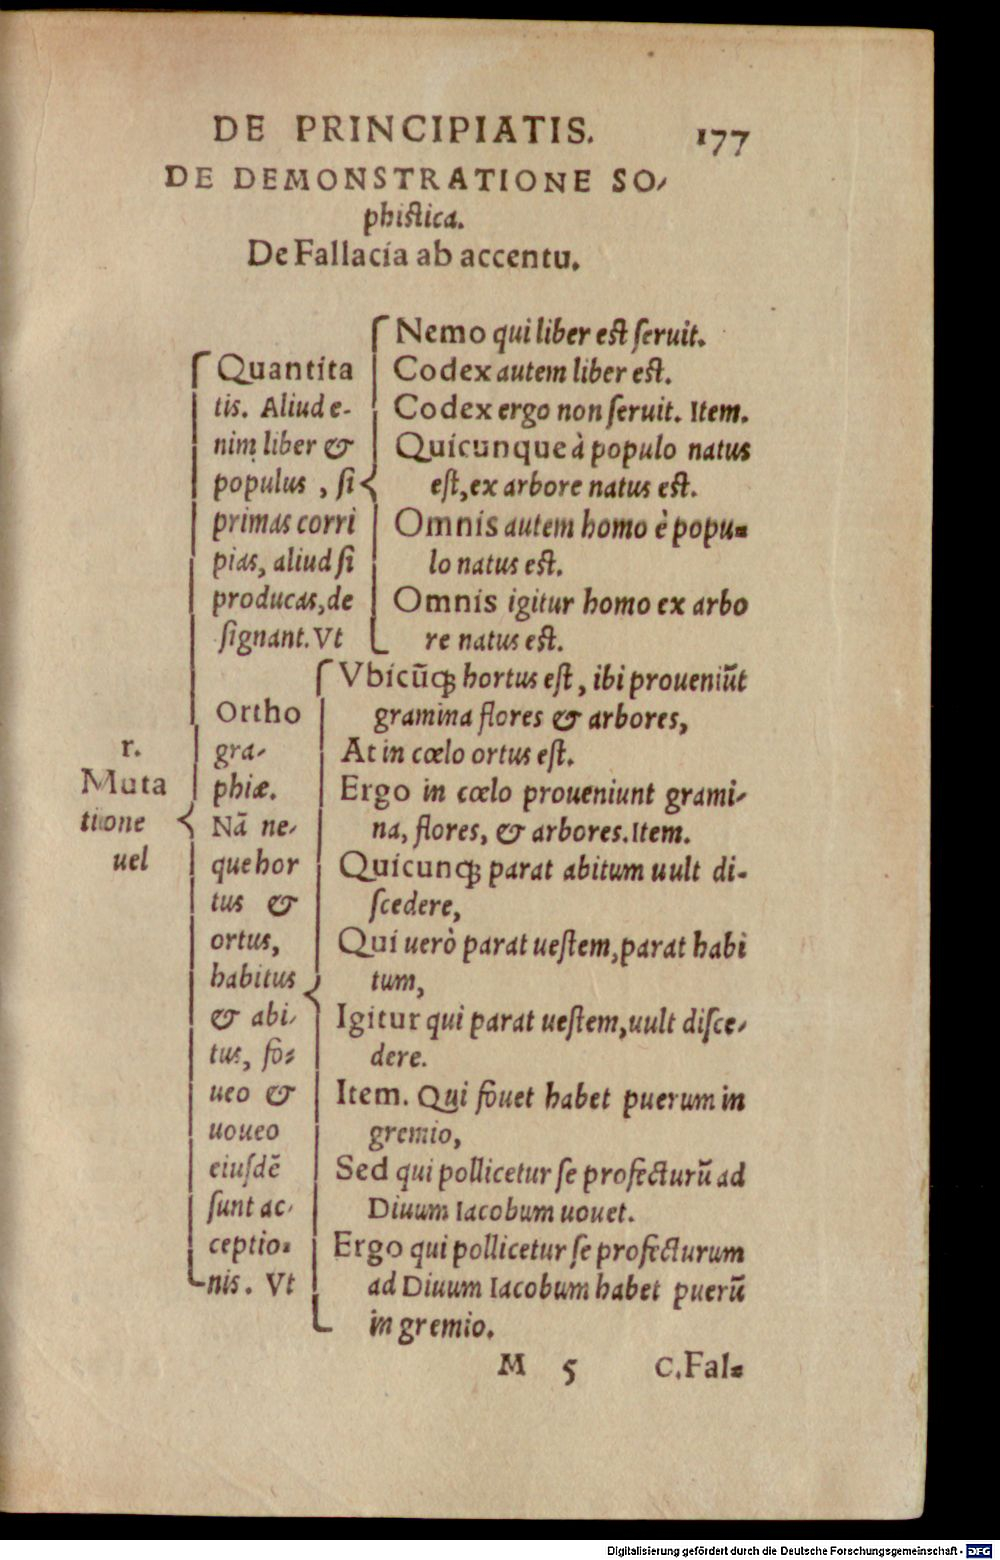 DE PRINCIPIATIS. 177
DE DEMONSTRATIONE SO⸗
phistica.
De Fallacia ab accentu.
r.
Muta
tione
uel
Quantita
tis. Aliud e-
nim liber &
populus, si
primas corri
pias, aliud si
producas, de
signant. Vt
Nemo qui liber est seruit.
Codex autem liber est.
Codex ergo non seruit. Item.
Quicunque à populo natus
est, ex arbore natus est.
Omnis autem homo è popu⸗
lo natus est.
Omnis igitur homo ex arbo
re natus est.
Ortho
gra⸗
phiæ.
Nã ne⸗
que hor
tus &
ortus,
habitus
& abi⸗
tus, fo⸗
ueo &
uoueo
eiusdẽ
sunt ac⸗
ceptio⸗
nis. Vt
Vbicũq; hortus est, ibi proueniũt
gramina flores & arbores,
At in cœlo ortus est.
Ergo in cœlo proueniunt grami⸗
na, flores, & arbores. Item.
Quicunq; parat abitum uult di-
scedere,
Qui uerò parat uestem, parat habi
tum,
Igitur qui parat uestem, uult disce⸗
dere.
Item. Qui fouet habet puerum in
gremio,
Sed qui pollicetur se profecturũ ad
Diuum Iacobum uouet.
Ergo qui pollicetur se profecturum
ad Diuum Iacobum habet puerũ
in gremio.
M 5 C. Fal⸗
Digitalisierung gefördert durch die Deutsche Forschungsgemeinschaft - DFG